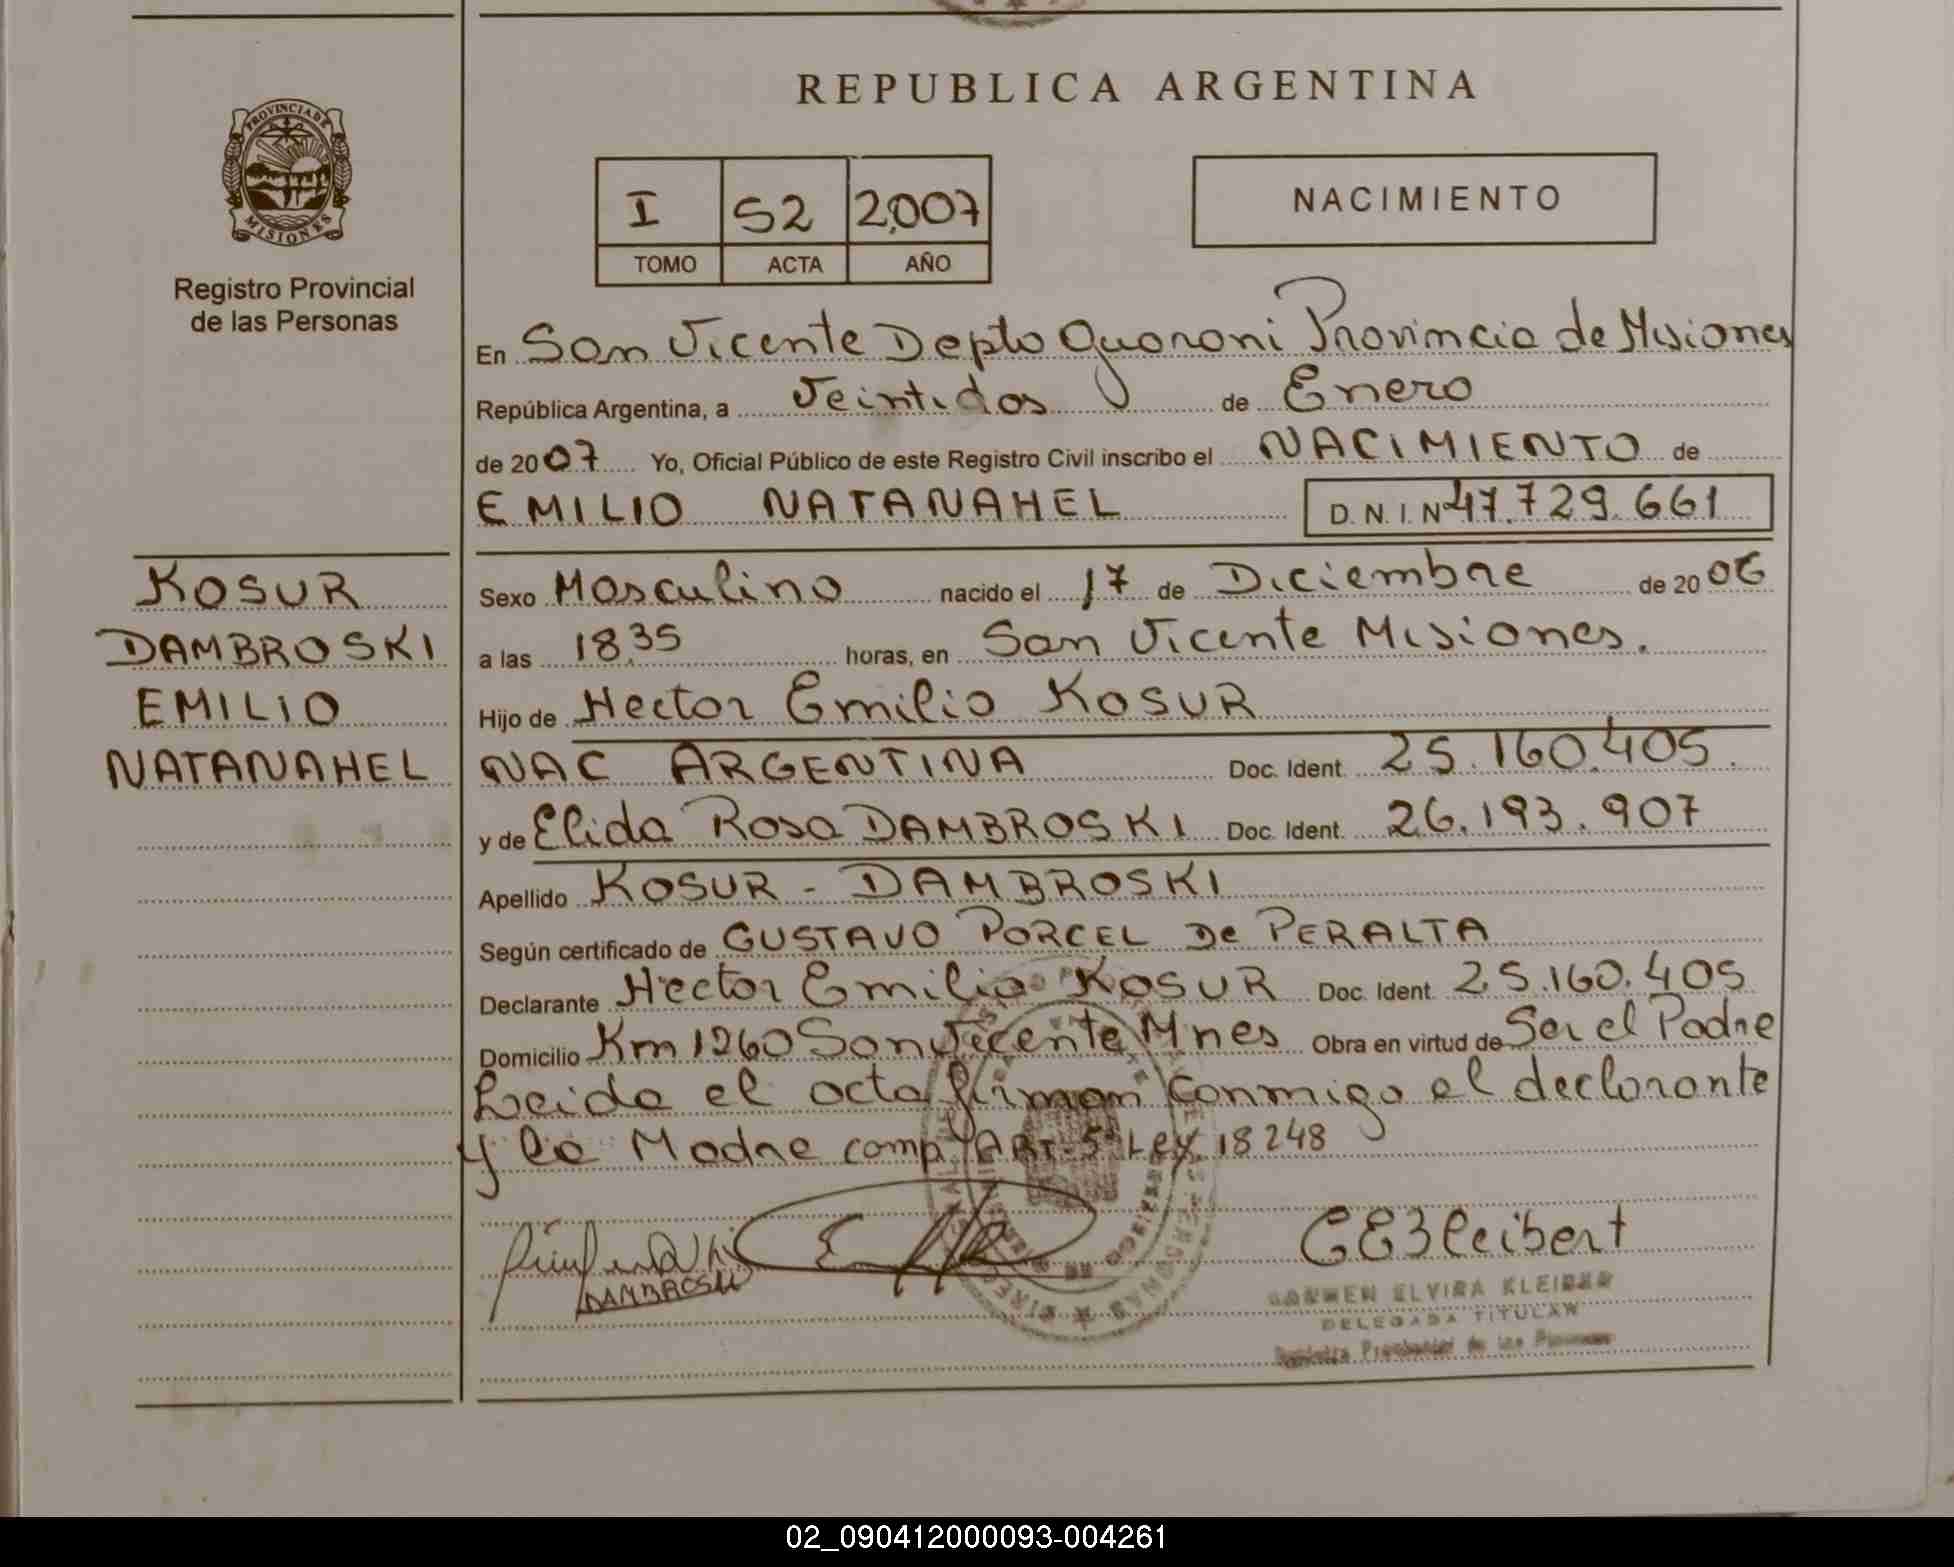 REPUBLICA ARGENTINA
PROVINCIA DE
MISIONES
Registro Provincial
de las Personas
I 52 2.007
TOMO ACTA AÑO
NACIMIENTO
En San Vicente Depto Guarani Provincia de Misiones
República Argentina, a Veintidos de Enero
de 2007 Yo, Oficial Público de este Registro Civil inscribo el NACIMIENTO de
EMILIO NATANAHEL D.N.I.Nº 47.729.661
KOSUR
DAMBROSKI
EMILIO
NATANAHEL
Sexo Masculino nacido el 17 de Diciembre de 2006
a las 18,35 horas, en San Vicente Misiones.
Hijo de Hector Emilio KOSUR
NAC ARGENTINA Doc. Ident. 25.160.405.
y de Elida Rosa DAMBROSKI Doc. Ident. 26.193.907
Apellido KOSUR - DAMBROSKI
Según certificado de GUSTAVO PORCEL De PERALTA
Declarante Hector Emilio KOSUR Doc. Ident. 25.160.405
Domicilio Km 1260 San Vicente Mnes Obra en virtud de Ser el Padre
Leida el acta firman conmigo el declarante
y la Madre comp. ART. 5º Ley 18248
DAMBROSKI
CARMEN ELVIRA
DELEGADA TITULAR
Registro Provincial de las Personas
02_090412000093-004261